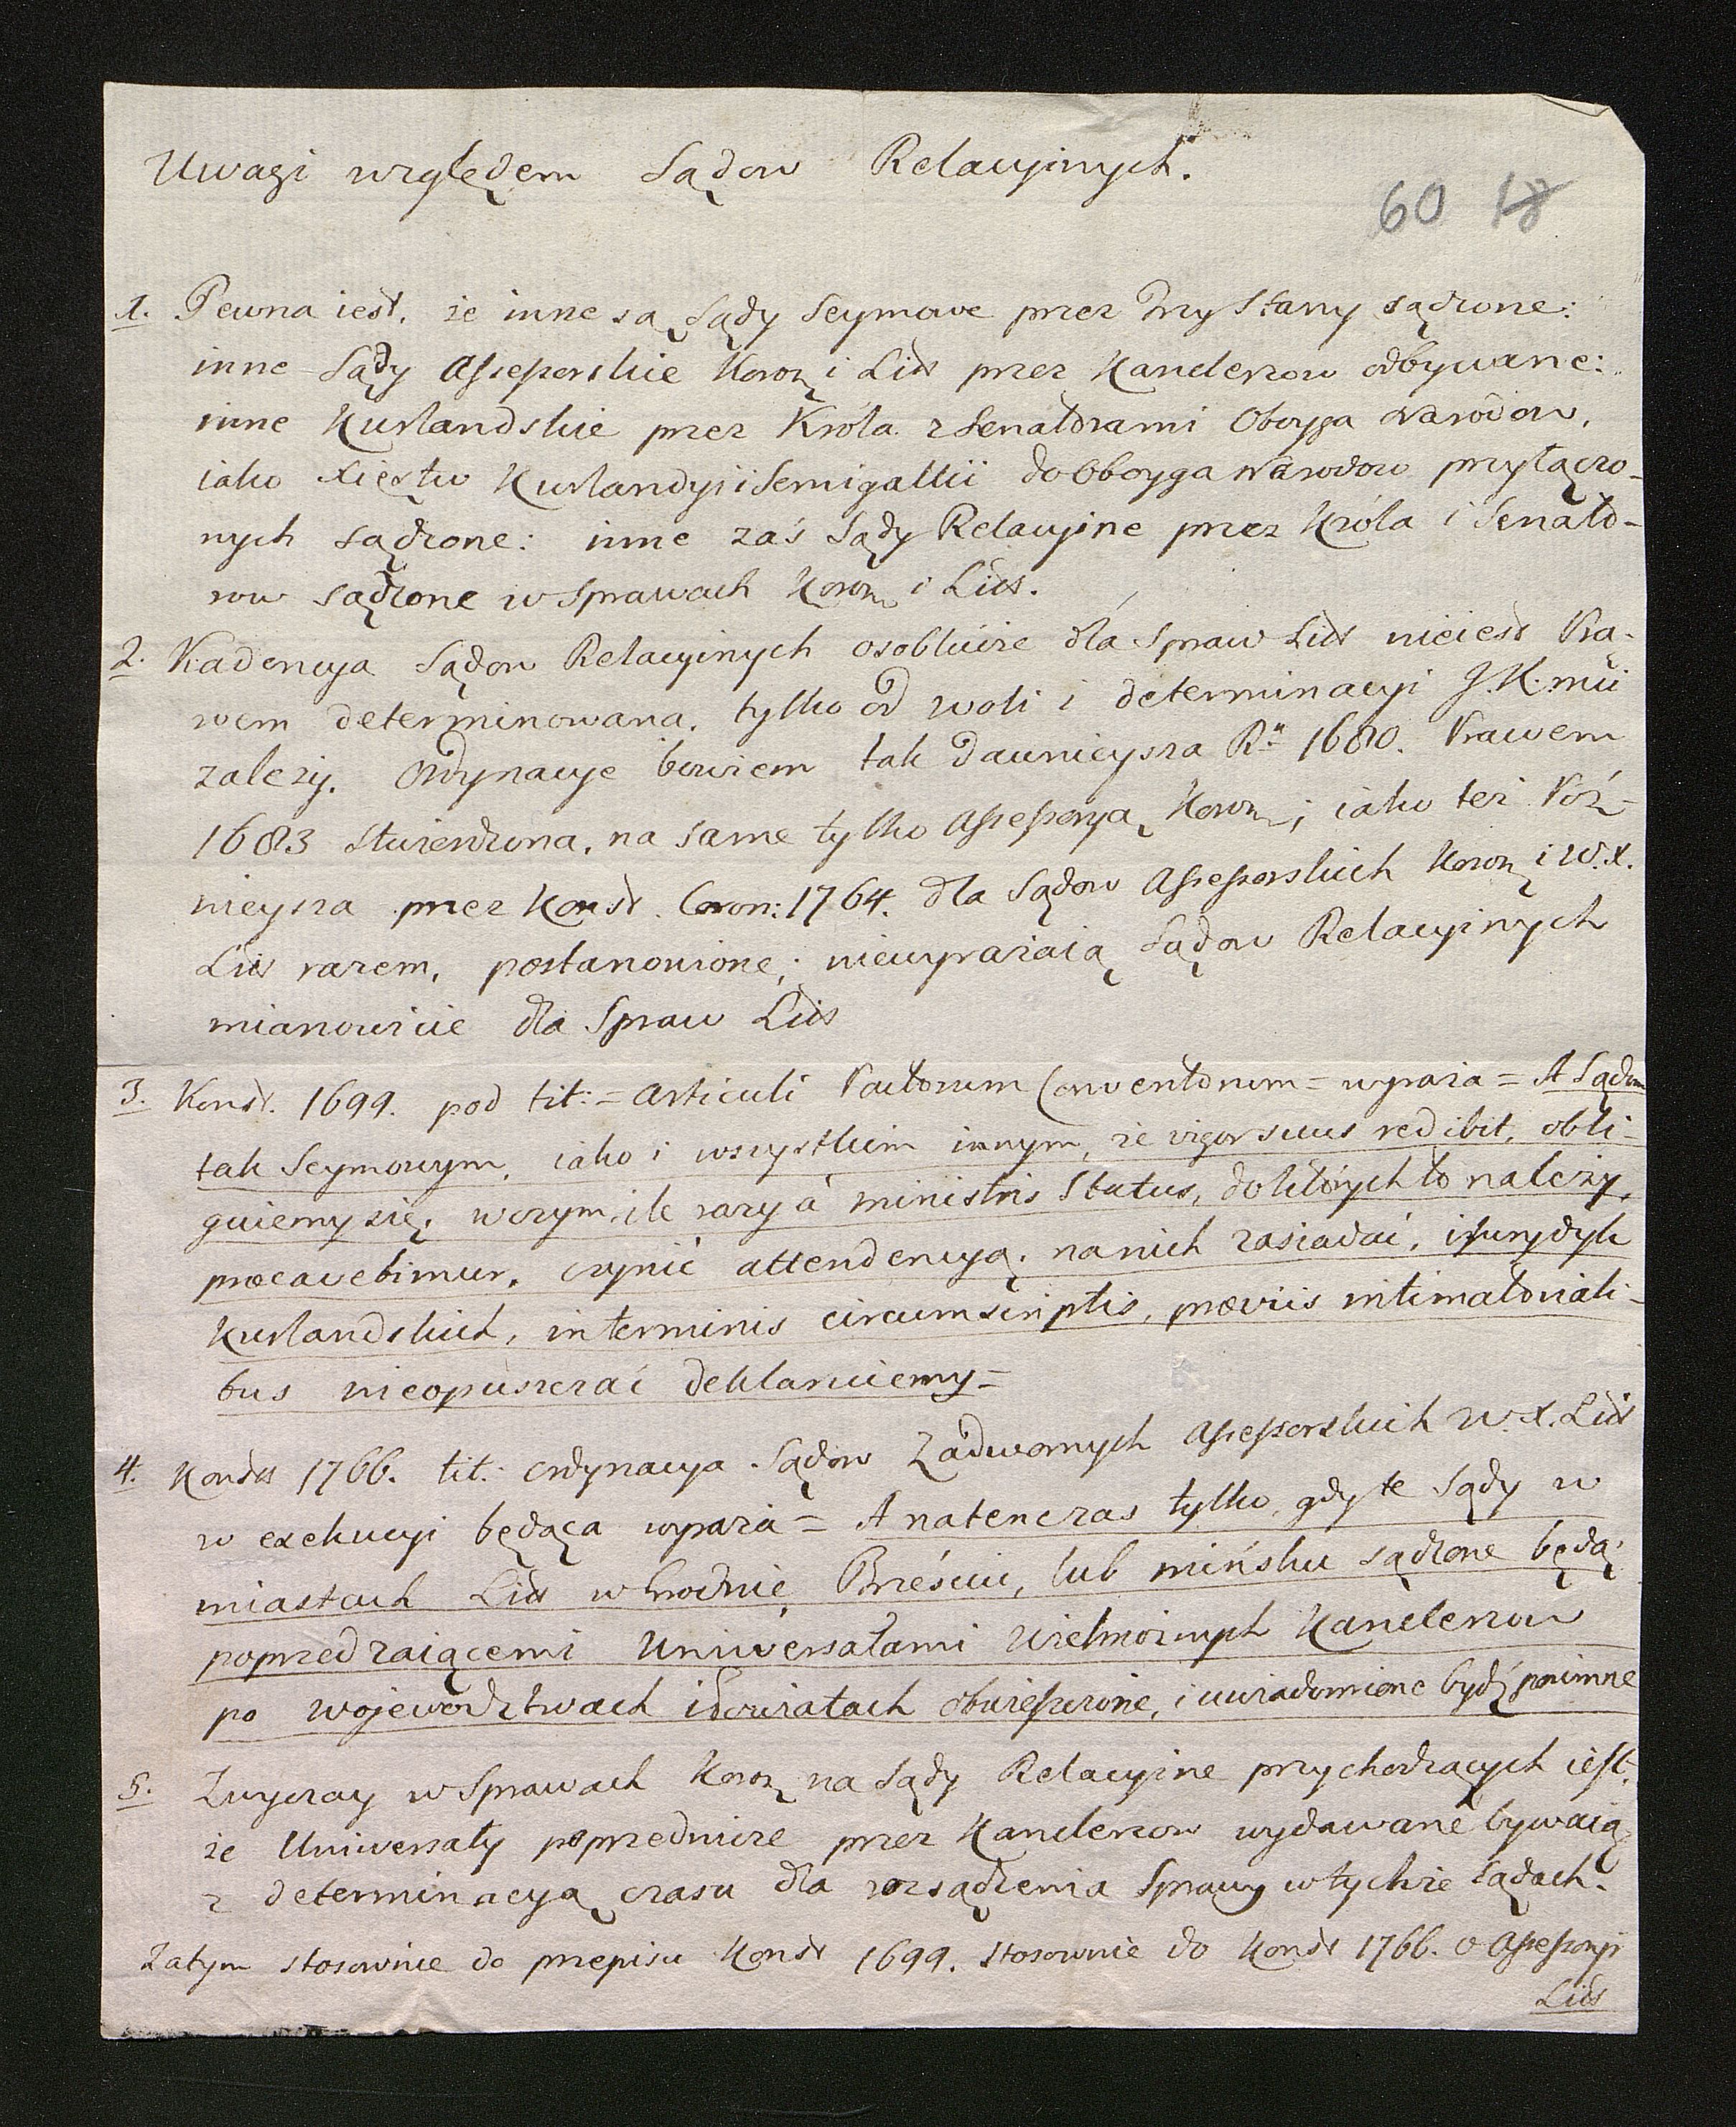 Uwagi względem Sądow Relacyinych.
60 18
1. Pewna iest, że inne są Sądy Seymowe przez Trzy Stany sądzone:
inne Sądy Assessorskie Koron i Litt przez Kanclerzow odbywane:
inne Kurlandskie przez Króla z Senatorami Oboyga Narodow,
iako Xięstw Kurlandyi i Semigallii do Oboyga Narodow przyłączo-
nych sądzone: inne zaś Sądy Relacyine przez Króla i Senato-
row sądzone w Sprawach Koron i Litt.
2. Kadencya Sądow Relacyinych osobliwie dla Spraw Litt nieiest Pra-
wem determinowana, tylko od woli i determinacyi J.K.mci
zależy. Ordynacye bowiem tak dawnieysza Ru 1680. Prawem
1683 stwierdzona, na same tylko Assessoryą Koron; iako też Póź-
nieysza przez Konst. Coron: 1764. dla Sądow Assessorskich Koron i W.X.
Litt razem, postanowione; niewyrażaią Sądow Relacyinych
mianowicie dla Spraw Litt
3. Konst. 1699. pod tit: = Articuli Pactorum Conventorum = wyraża = A Sądom
tak Seymowym, iako i wszystkim innym, że vigor suus redibit, obli-
guiemy się, w czym ile razy á ministris Status, do których to należy,
præcavebimur, czynić attendencyą, na nich zasiadać, i Jurydyk
Kurlandskich, in terminis circumscriptis, præviis intimatoriali-
bus nieopuszczać deklaruiemy =
4. Konst 1766. tit: Ordynacya Sądow Zadwornych Assessorskich W.X. Litt
w exekucyi będąca wyraża = A natenczas tylko, gdy te Sądy w
miastach Litt w Grodnie, Brześciu, lub mińsku sądzone będą,
poprzedzaiącemi Uniwersałami Wielmożnych Kanclerzow
po Wojewodztwach i Powiatach obwieszczone, i uwiadomione bydź powinne
5. Zwyczay w Sprawach Koron na Sądy Relacyine przychodzących iest,
że Uniwersały poprzednicze przez Kanclerzow wydawane bywaią
z determinacyą czasu dla rozsądzenia Sprawy w tychże Sądach.
Zatym stosownie do przepisu Konst 1699. stosownie do Konst 1766. o Assessoryi
Litt